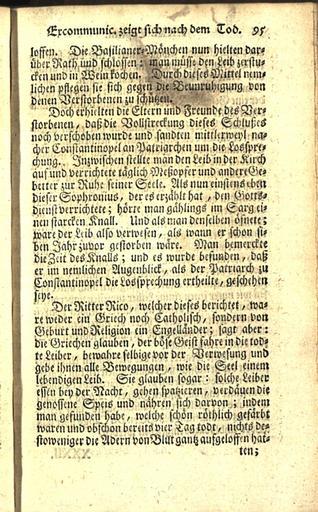 Excommunic. zeigt sich nach dem Tod. 95
loffen. Die Basilianer-Mönchen nun hielten dar-
über Rath und schlossen: man müsse den Leib zerstu-
cken und in Wein kochen. Durch dieses Mittel nem-
lichen pflegen sie sich gegen die Beunruhigung von
denen Verstorbenen zu schützen.
Doch erhielten die Eltern und Freunde des Ver-
storbenen, daß die Vollstreckung dieses Schlusses
noch verschoben wurde und sandten mittlerweyl na-
cher Constantinopel an Patriarchen um die Losspre-
chung. Inzwischen stellte man den Leib in der Kirch
auf und verrichtete täglich Meßopfer und andere Ge-
better zur Ruhe seiner Seele. Als nun einstens eben
dieser Sophronius, der es erzählt hat, den Gotts-
dienst verrichtete; hörte man gählings im Sarg ei-
nen starcken Knall. Und als man denselben öfnete;
ware der Leib also verwesen, als wann er schon sie-
ben Jahr zuvor gestorben wäre. Man bemerckte
die Zeit des Knalls; und es wurde befunden, daß
er im nemlichen Augenblick, als der Patriarch zu
Constantinopel die Lossprechung ertheilte, geschehen
seye.
Der Ritter Rico, welcher dieses berichtet, wa-
re wider ein Griech noch Catholisch, sondern von
Geburt und Religion ein Engelländer; sagt aber:
die Griechen glauben, der böse Geist fahre in die tod-
te Leiber, bewahre selbige vor der Verwesung und
gebe ihnen alle Bewegungen, wie die Seel einem
lebendigen Leib. Sie glauben sogar: solche Leiber
essen bey der Nacht, gehen spatzieren, verdäuen die
genossene Speis und nähren sich darvon; indem
man gefunden habe, welche schön röthlich gefärbt
waren und obschon bereits vier Tag todt, nichts de-
stoweniger die Adern von Blut gantz aufgeloffen hat-
ten;